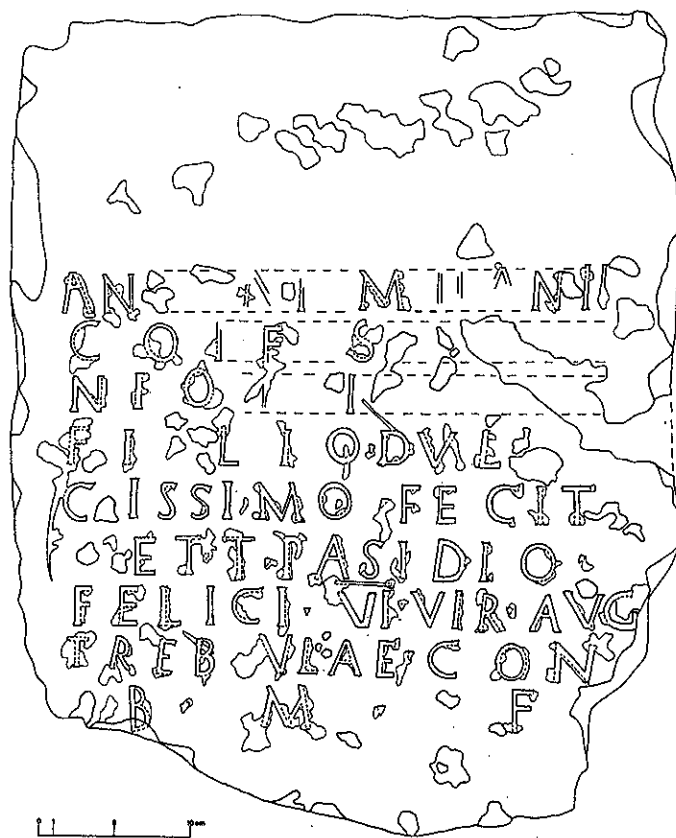 AN M NII
C O I F S
N F O I
FILIO
CISSI·MO FECIT
ET T PASIDIO
FELICI · VIVIR · AVG
TREBVLAE CON
B · M · F
10 cm